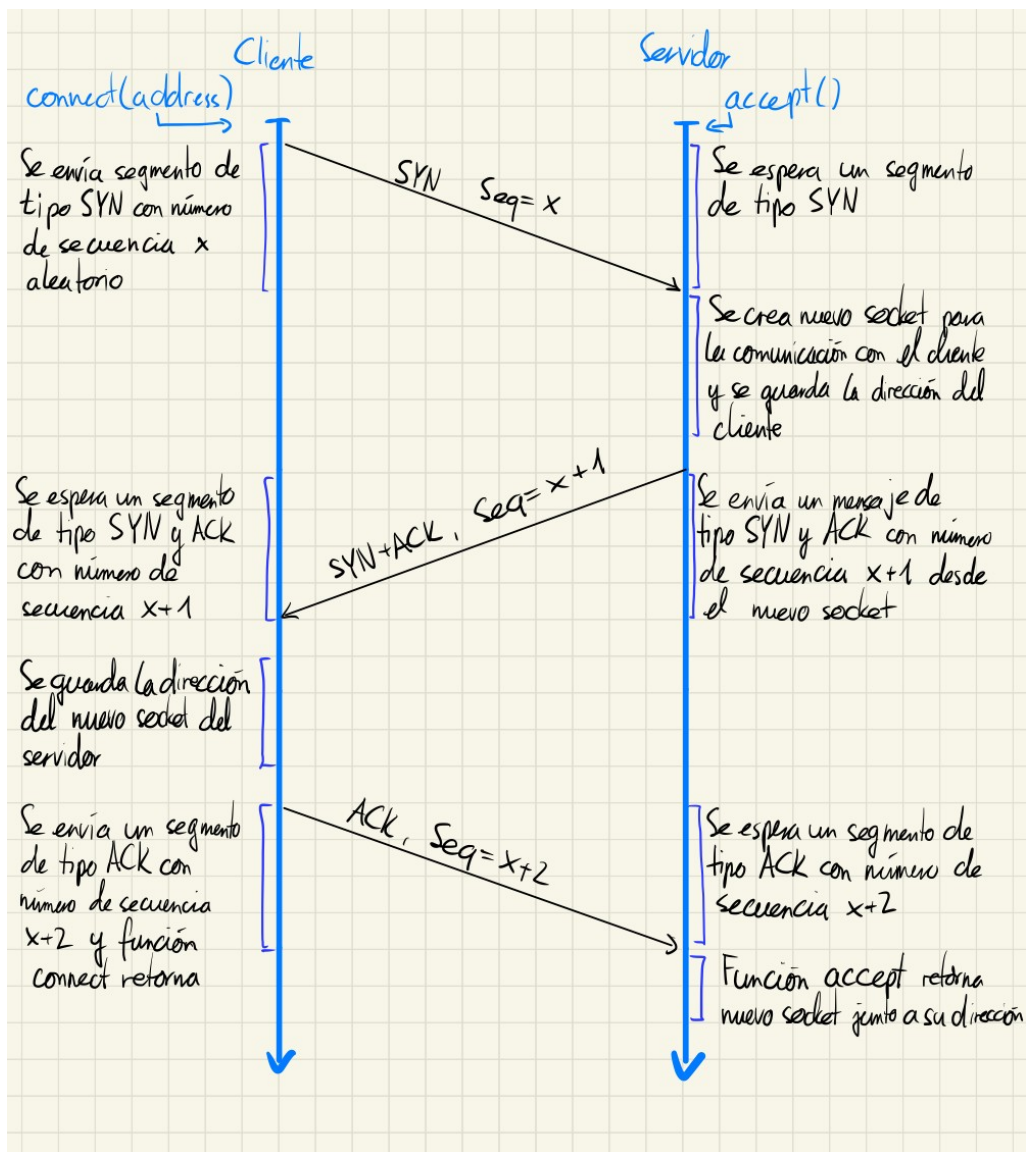 Cliente
Servidor
connect(address)
accept()
Se envía segmento de
tipo SYN con número
de secuencia x
aleatorio
SYN Seq=x
Se espera un segmento
de tipo SYN
Se crea nuevo socket para
la comunicación con el cliente
y se guarda la dirección del
cliente
Se espera un segmento
de tipo SYN y ACK
con número de
secuencia x+1
SYN+ACK, Seq=x+1
Se envía un mensaje de
tipo SYN y ACK con número
de secuencia x+1 desde
el nuevo socket
Se guarda la dirección
del nuevo socket del
servidor
Se envía un segmento
de tipo ACK con
número de secuencia
x+2 y función
connect retorna
ACK, Seq=x+2
Se espera un segmento de
tipo ACK con número de
secuencia x+2
Función accept retorna
nuevo socket junto a su dirección